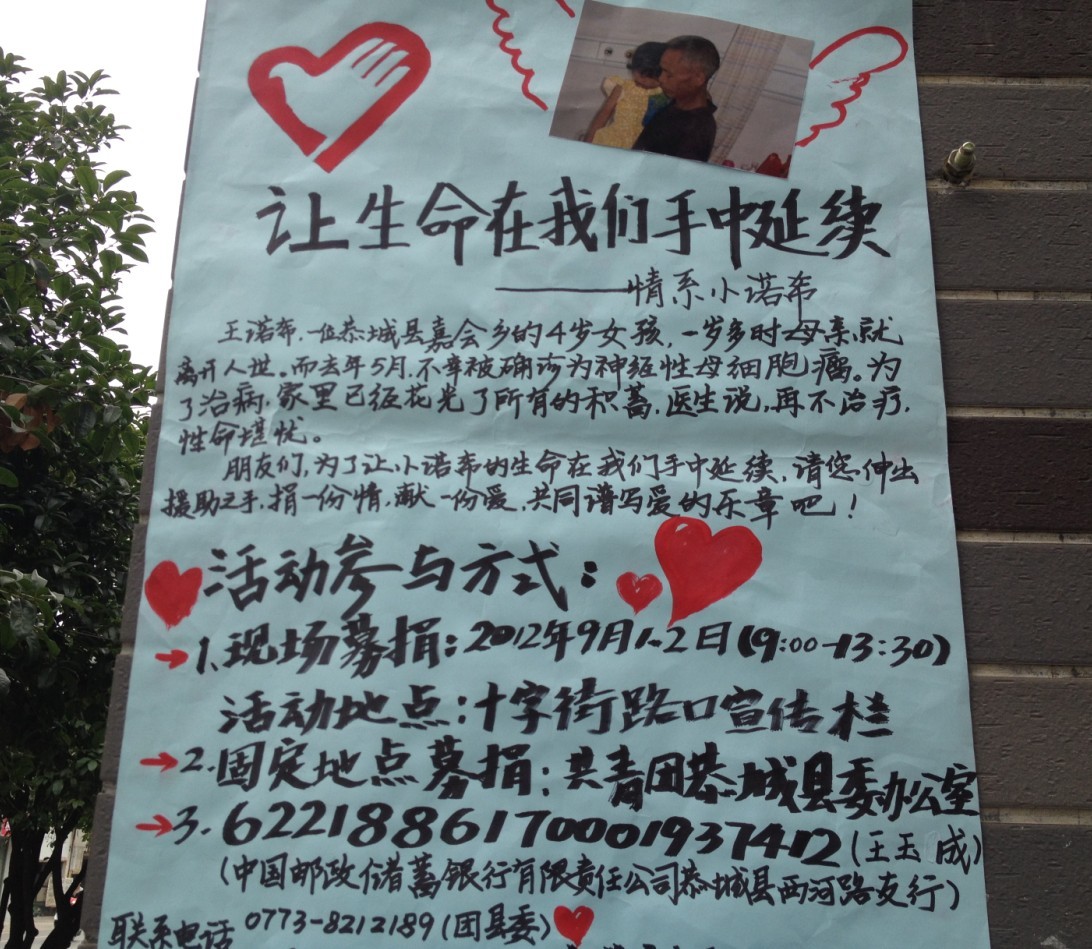 让生命在我们手中延续
——情系小诺希
王诺希,一位恭城县嘉会乡的4岁女孩,一岁多时母亲就
离开人世。而去年5月,不幸被确诊为神经性母细胞瘤。为
了治病,家里已经花光了所有的积蓄,医生说,再不治疗,
性命堪忧。
朋友们,为了让小诺希的生命在我们手中延续,请您伸出
援助之手,捐一份情,献一份爱,共同谱写爱的乐章吧!
活动参与方式:
1.现场募捐:2012年9月1.2日(9:00-13:30)
活动地点:十字街路口宣传栏
2.固定地点募捐:共青团恭城县委办公室
3.6221886170001937412(王玉成)
(中国邮政储蓄银行有限责任公司恭城县西河路支行)
联系电话 0773-8212189(团县委)